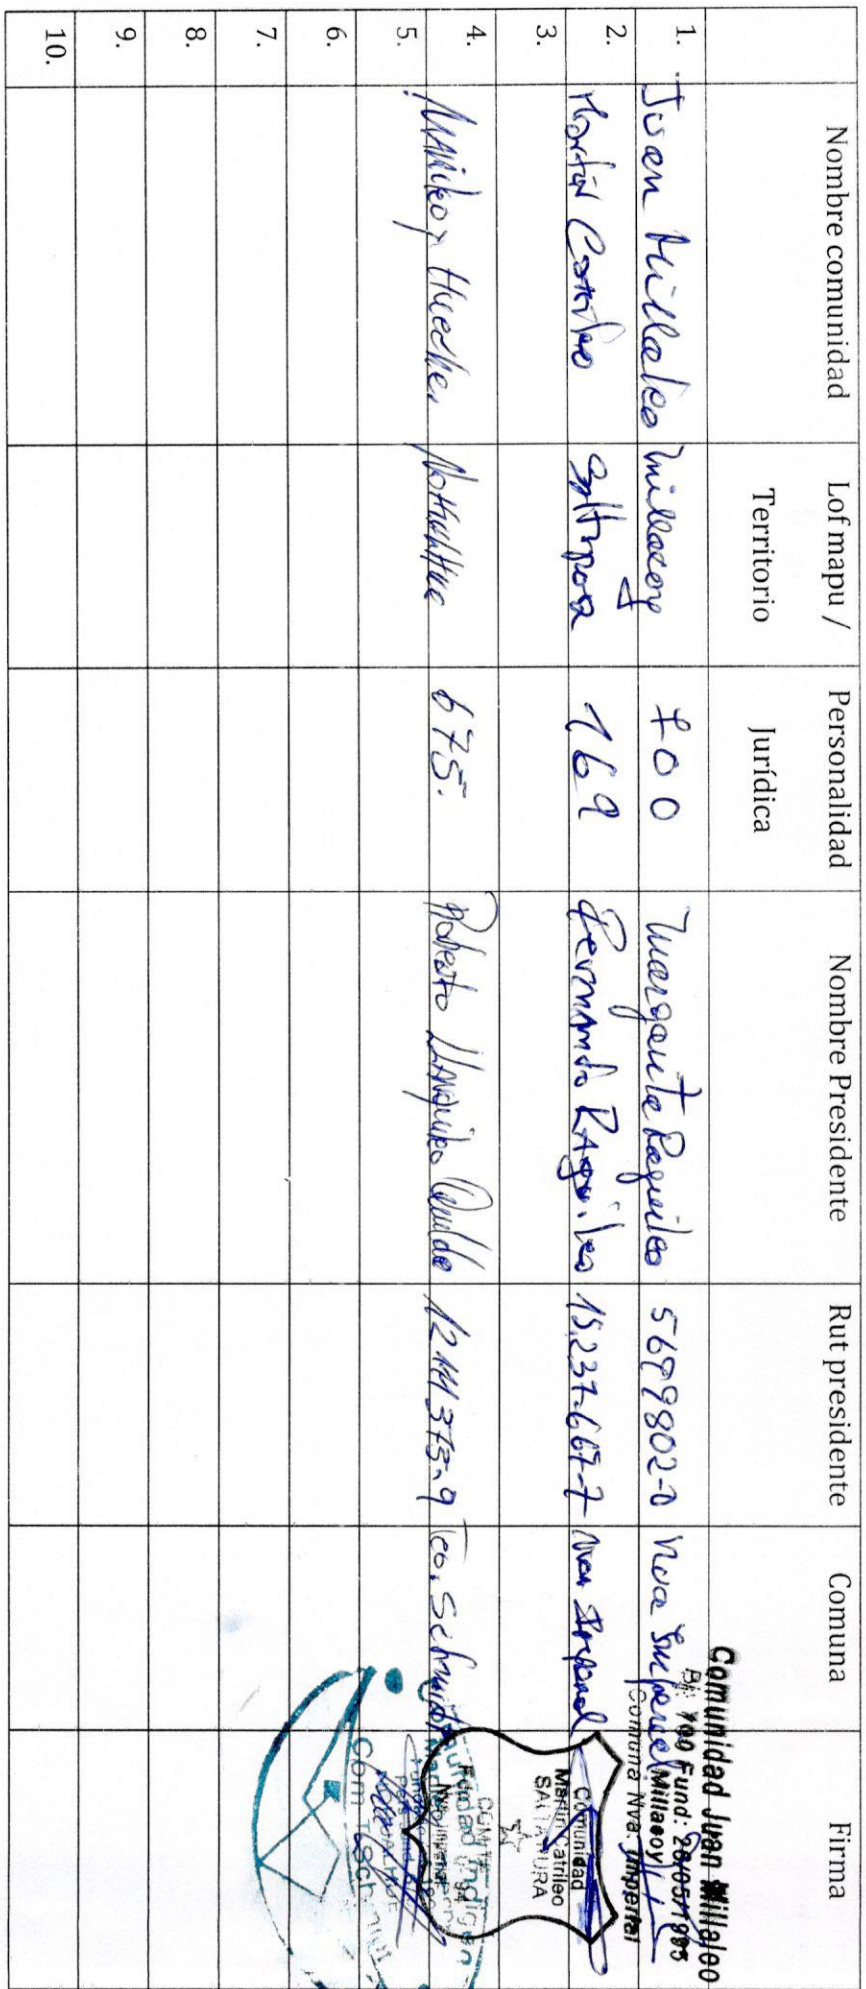 Nombre comunidad Lof mapu / Territorio Personalidad Jurídica Nombre Presidente Rut presidente Comuna Firma
1. Juan Millaleo Millacoy 700 Margarita Raguileo 5699802-0 Nva Imperial
Comunidad Juan Millaleo
PJ: 700 Fund: 26/05/1995
Millacoy
Comuna Nva. Imperial
2. Martin Catrileo Saltapura 169 Fernando Raguileo 15.237.667-7 Nva Imperial
Comunidad
Martin Catrileo
SALTAPURA
3.
4. Huechem 675. Roberto 12111373-9 Teo. Schmidt
Com T. Schmidt
5.
6.
7.
8.
9.
10.